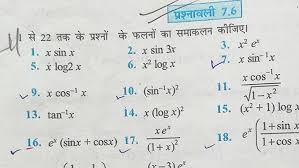 प्रश्नावली 7.6
1 से 22 तक के प्रश्नों के फलनों का समाकलन कीजिए।
1. x sin x 2. x sin 3x 3. x² eˣ
5. x log2x 6. x² log x 7. x sin⁻¹x
9. x cos⁻¹ x 10. (sin⁻¹x)² 11. x cos⁻¹x / √(1−x²)
13. tan⁻¹x 14. x (log x)² 15. (x² + 1) log x
16. eˣ (sinx + cosx) 17. x eˣ / (1 + x)² 18. eˣ (1+sin x / 1+cos x